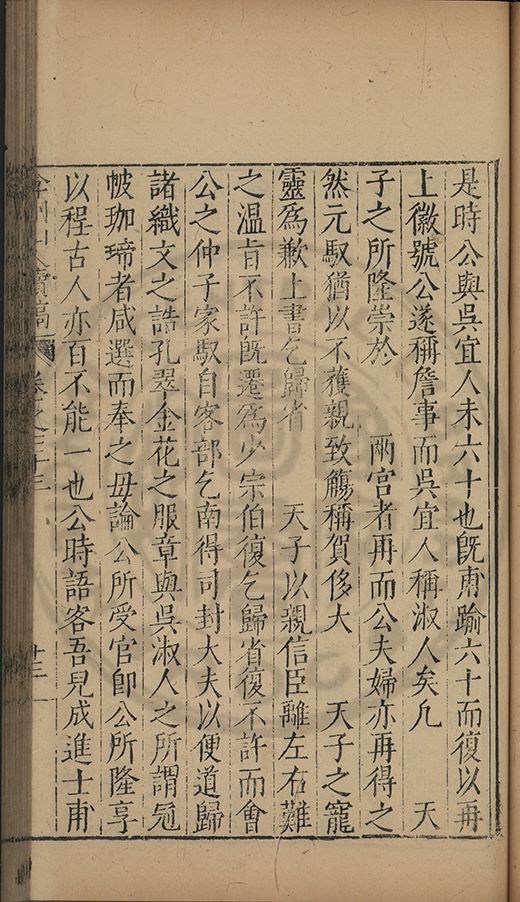 是時公與吳宜人未六十也旣甫踰六十而復以再
上徽號公遂稱詹事而吳宜人稱淑人矣凢　天
子之所隆崇於　兩宮者再而公夫婦亦再得之
然元馭猶以不獲親致觴稱賀侈大　天子之寵
靈爲歉上書乞歸省　天子以親信臣離左右難
之溫旨不許旣遷爲少宗伯復乞歸省復不許而會
公之仲子家馭自客部乞南得司封大夫以便道歸
諸織文之誥孔翠金花之服章與吳淑人之所謂冠
帔珈璲者咸選而奉之毋論公所受官卽公所隆享
以程古人亦百不能一也公時語客吾兒成進士甫
弇州山人續稿　卷之三十三　廿三